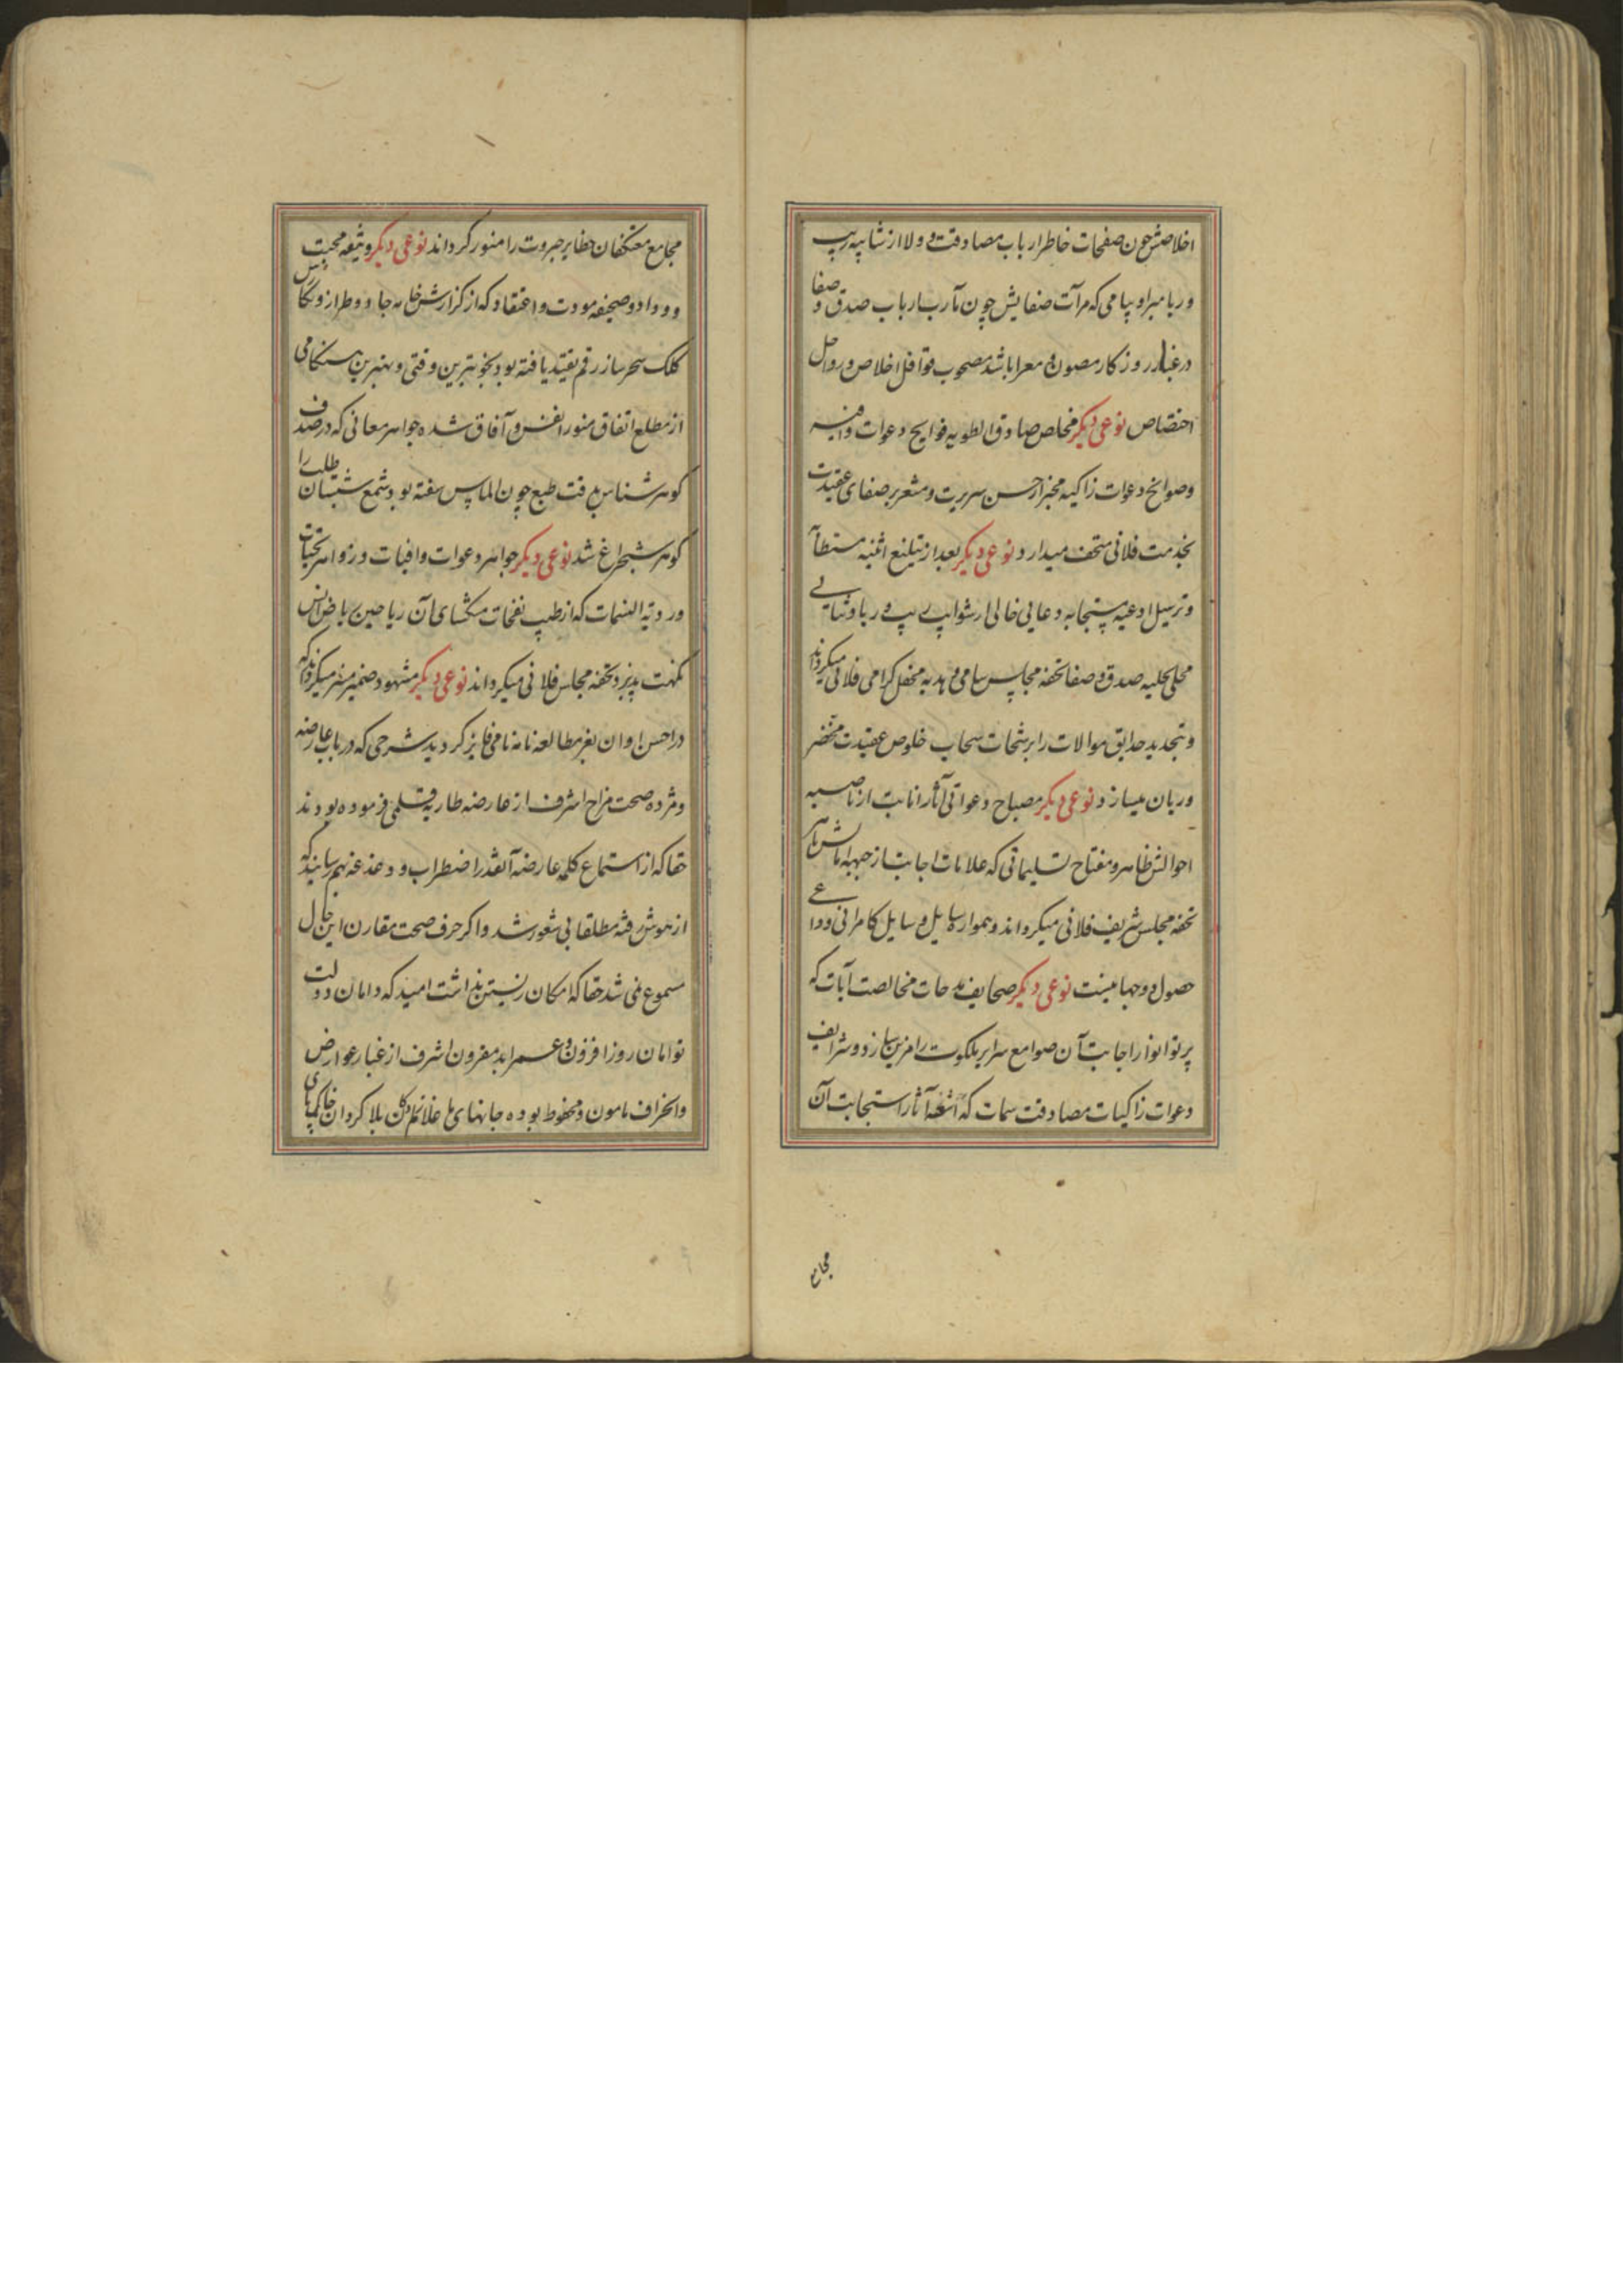 اخلاصش چون صفحات خاطر ارباب مصادقت و ولا از شایبه ریب
و ریا مبرا و پیامی که مرآت صفایش چون مآرب ارباب صدق و صفا
در غبار روزکار مصون و معرا باشد مصحوب قوافل اخلاص و رواحل
اختصاص نوعی دیکر مخلص صادق الطویه فوایح دعوات وافیه
و صوانح دعوات زاکیه مخبر از حسن سریرت و مشعر بر صفای عقیدت
بخدمت فلانی متحف میدارد نوعی دیکر بعد از تبلیغ اثنیه مستطابه
و ترسیل ادعیه مستجابه دعایی خالی از شوایب ریب و ریا و ثنایی
محلی بحلیه صدق و صفا تحفه مجالس سامی و هدیه محفل کرامی فلانی میکرداند
و بتجدید حدایق موالات را برشحات سحاب خلوص عقیدت مخضر
و ریان میسازد نوعی دیکر مصباح دعواتی آثار انابت از ناصیه
احوالش ظاهر و مفتاح تسلیماتی که علامات اجابت از جبهه اماتش باهر
تحفه مجلس شریف فلانی میکرداند و همواره رسایل و سایل کامرانی و دواعی
حصول دوجهانیست نوعی دیکر صحایف مدحات مخالصت آیات که
پرتو انوار اجابت آن صوامع سرایر ملکوت را مزین سازد و شرایف
دعوات زاکیات مصادقت سمات که اشعه آثار استجابت آن
مجامع
مجامع معتکفان حظایر جبروت را منور کرداند نوعی دیکر وثیقه محبت
و وداد و صحیفه مودت و اعتقاد که از کزارش خامه جادو طراز و نکارش
کلک سحر ساز رقم تقیید یافته بود بخوبترین وقتی و بهترین هنکامی
از مطلع اتفاق منور انفس و آفاق شده جواهر معانی که در صدف
کوهر شناس بدقت طبع چون الماس سفته بود شمع شبستان طلب را
کوهر شبچراغ شد نوعی دیکر جواهر دعوات وافیات و زواهر تحیات
وردیة النسمات که از طیب نفحات مشکسای آن ریاحین ریاض انس
نکهت پذیرد تحفه مجالس فلانی میکرداند نوعی دیکر مشهود ضمیر منیر میکرداند که
در احسن اوان بعز مطالعه نامه نامی فایز کردید شرحی که در باب عارضه
و مژده صحت مزاج اشرف از عارضه طاریه قلمی فرموده بودند
حقا که از استماع کلمه عارضه آنقدر اضطراب و دغدغه بهم رسانید که
از هوش رفته مطلقا بی شعور شد و اکر حرف صحت مقارن این حال
مسموع نمی شد حقا که امکان زیستن نداشت امید که دامان دولت
توامان روز افزون و عمر ابد مقرون اشرف از غبار عوارض
و انحراف مامون و محفوظ بوده جانهای ما غلامان بلا کردان خاکپای